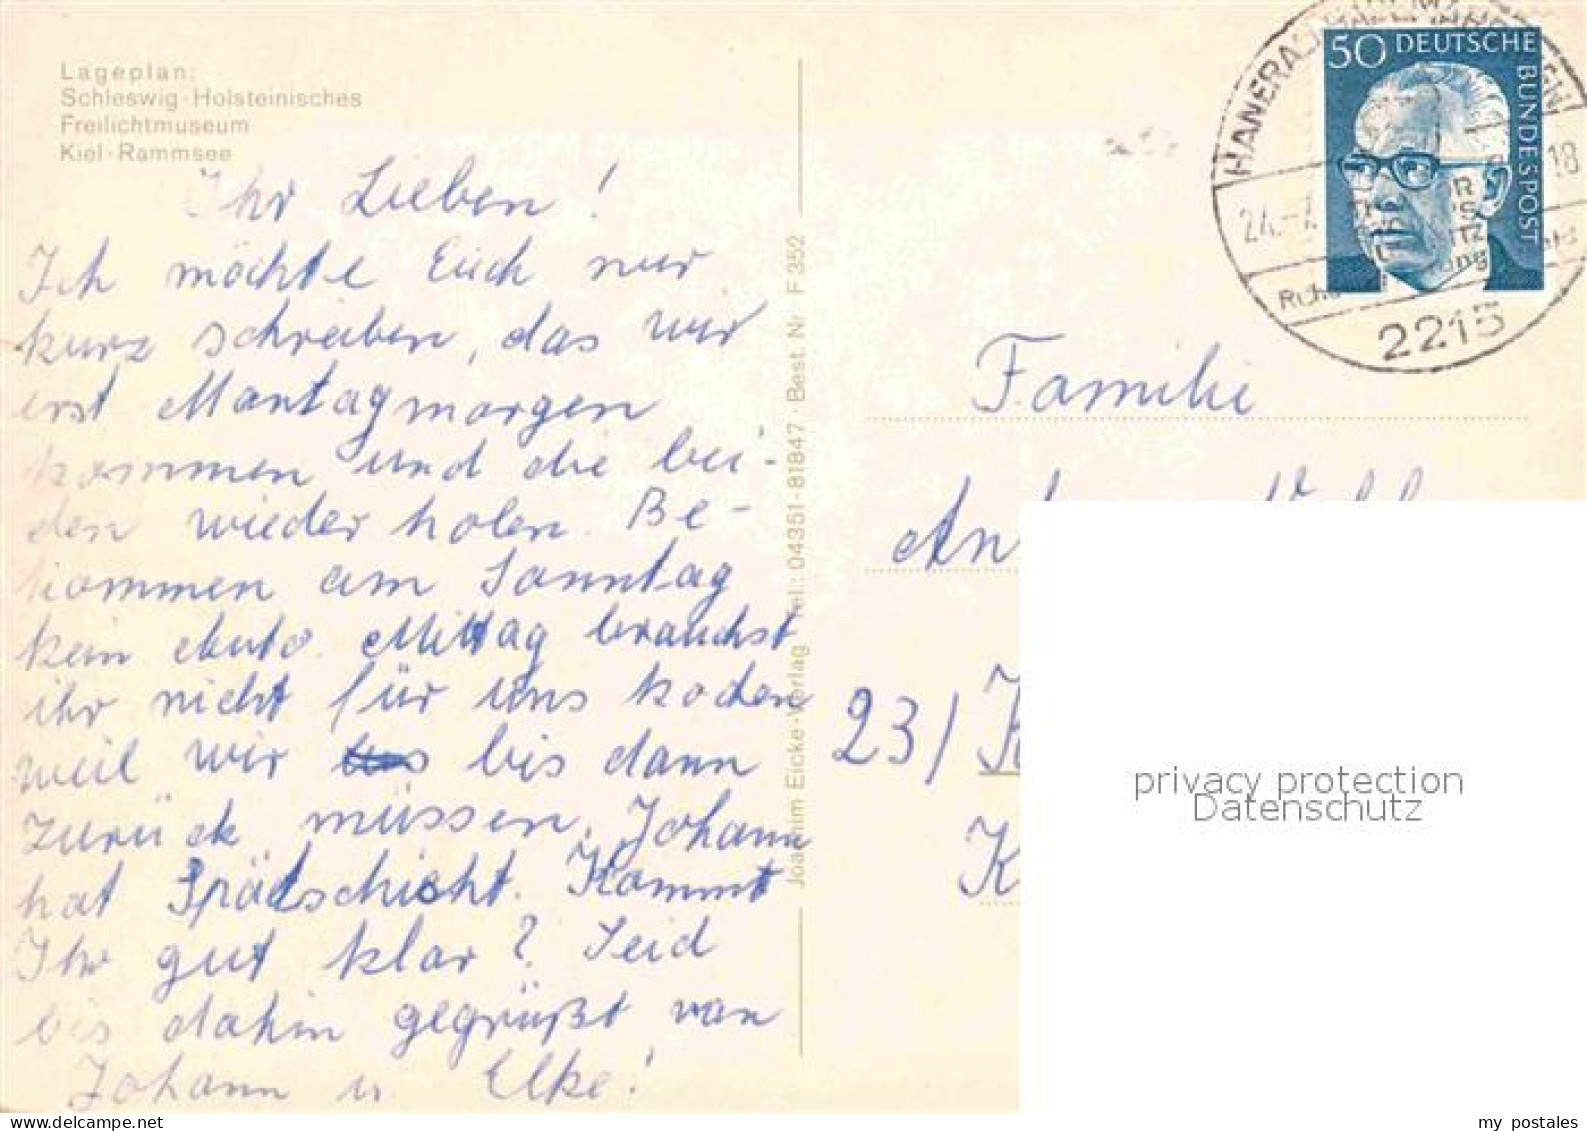 Lageplan:
Schleswig-Holsteinisches
Freilichtmuseum
Kiel-Rammsee
Ihr Lieben!
Ich möchte Euch nur
kurz schreiben, das wir
erst Montagmorgen
kommen und die bei-
den wieder holen. Be-
kommen am Sonntag
kein Auto. Mittag brauchst
ihr nicht für uns kochen
weil wir bis dann
zurück müssen. Johann
hat Spätschicht. Kommt
Ihr gut klar? Seid
bis dahin gegrüßt von
Johann u. Elke!
Joachim Eicke-Verlag Tel.: 04351-81847 · Best. Nr. F 352
50 DEUTSCHE
BUNDESPOST
18
24.
2215
Familie
23/
privacy protection
Datenschutz
www.ansichtskartenversand.com
my postales